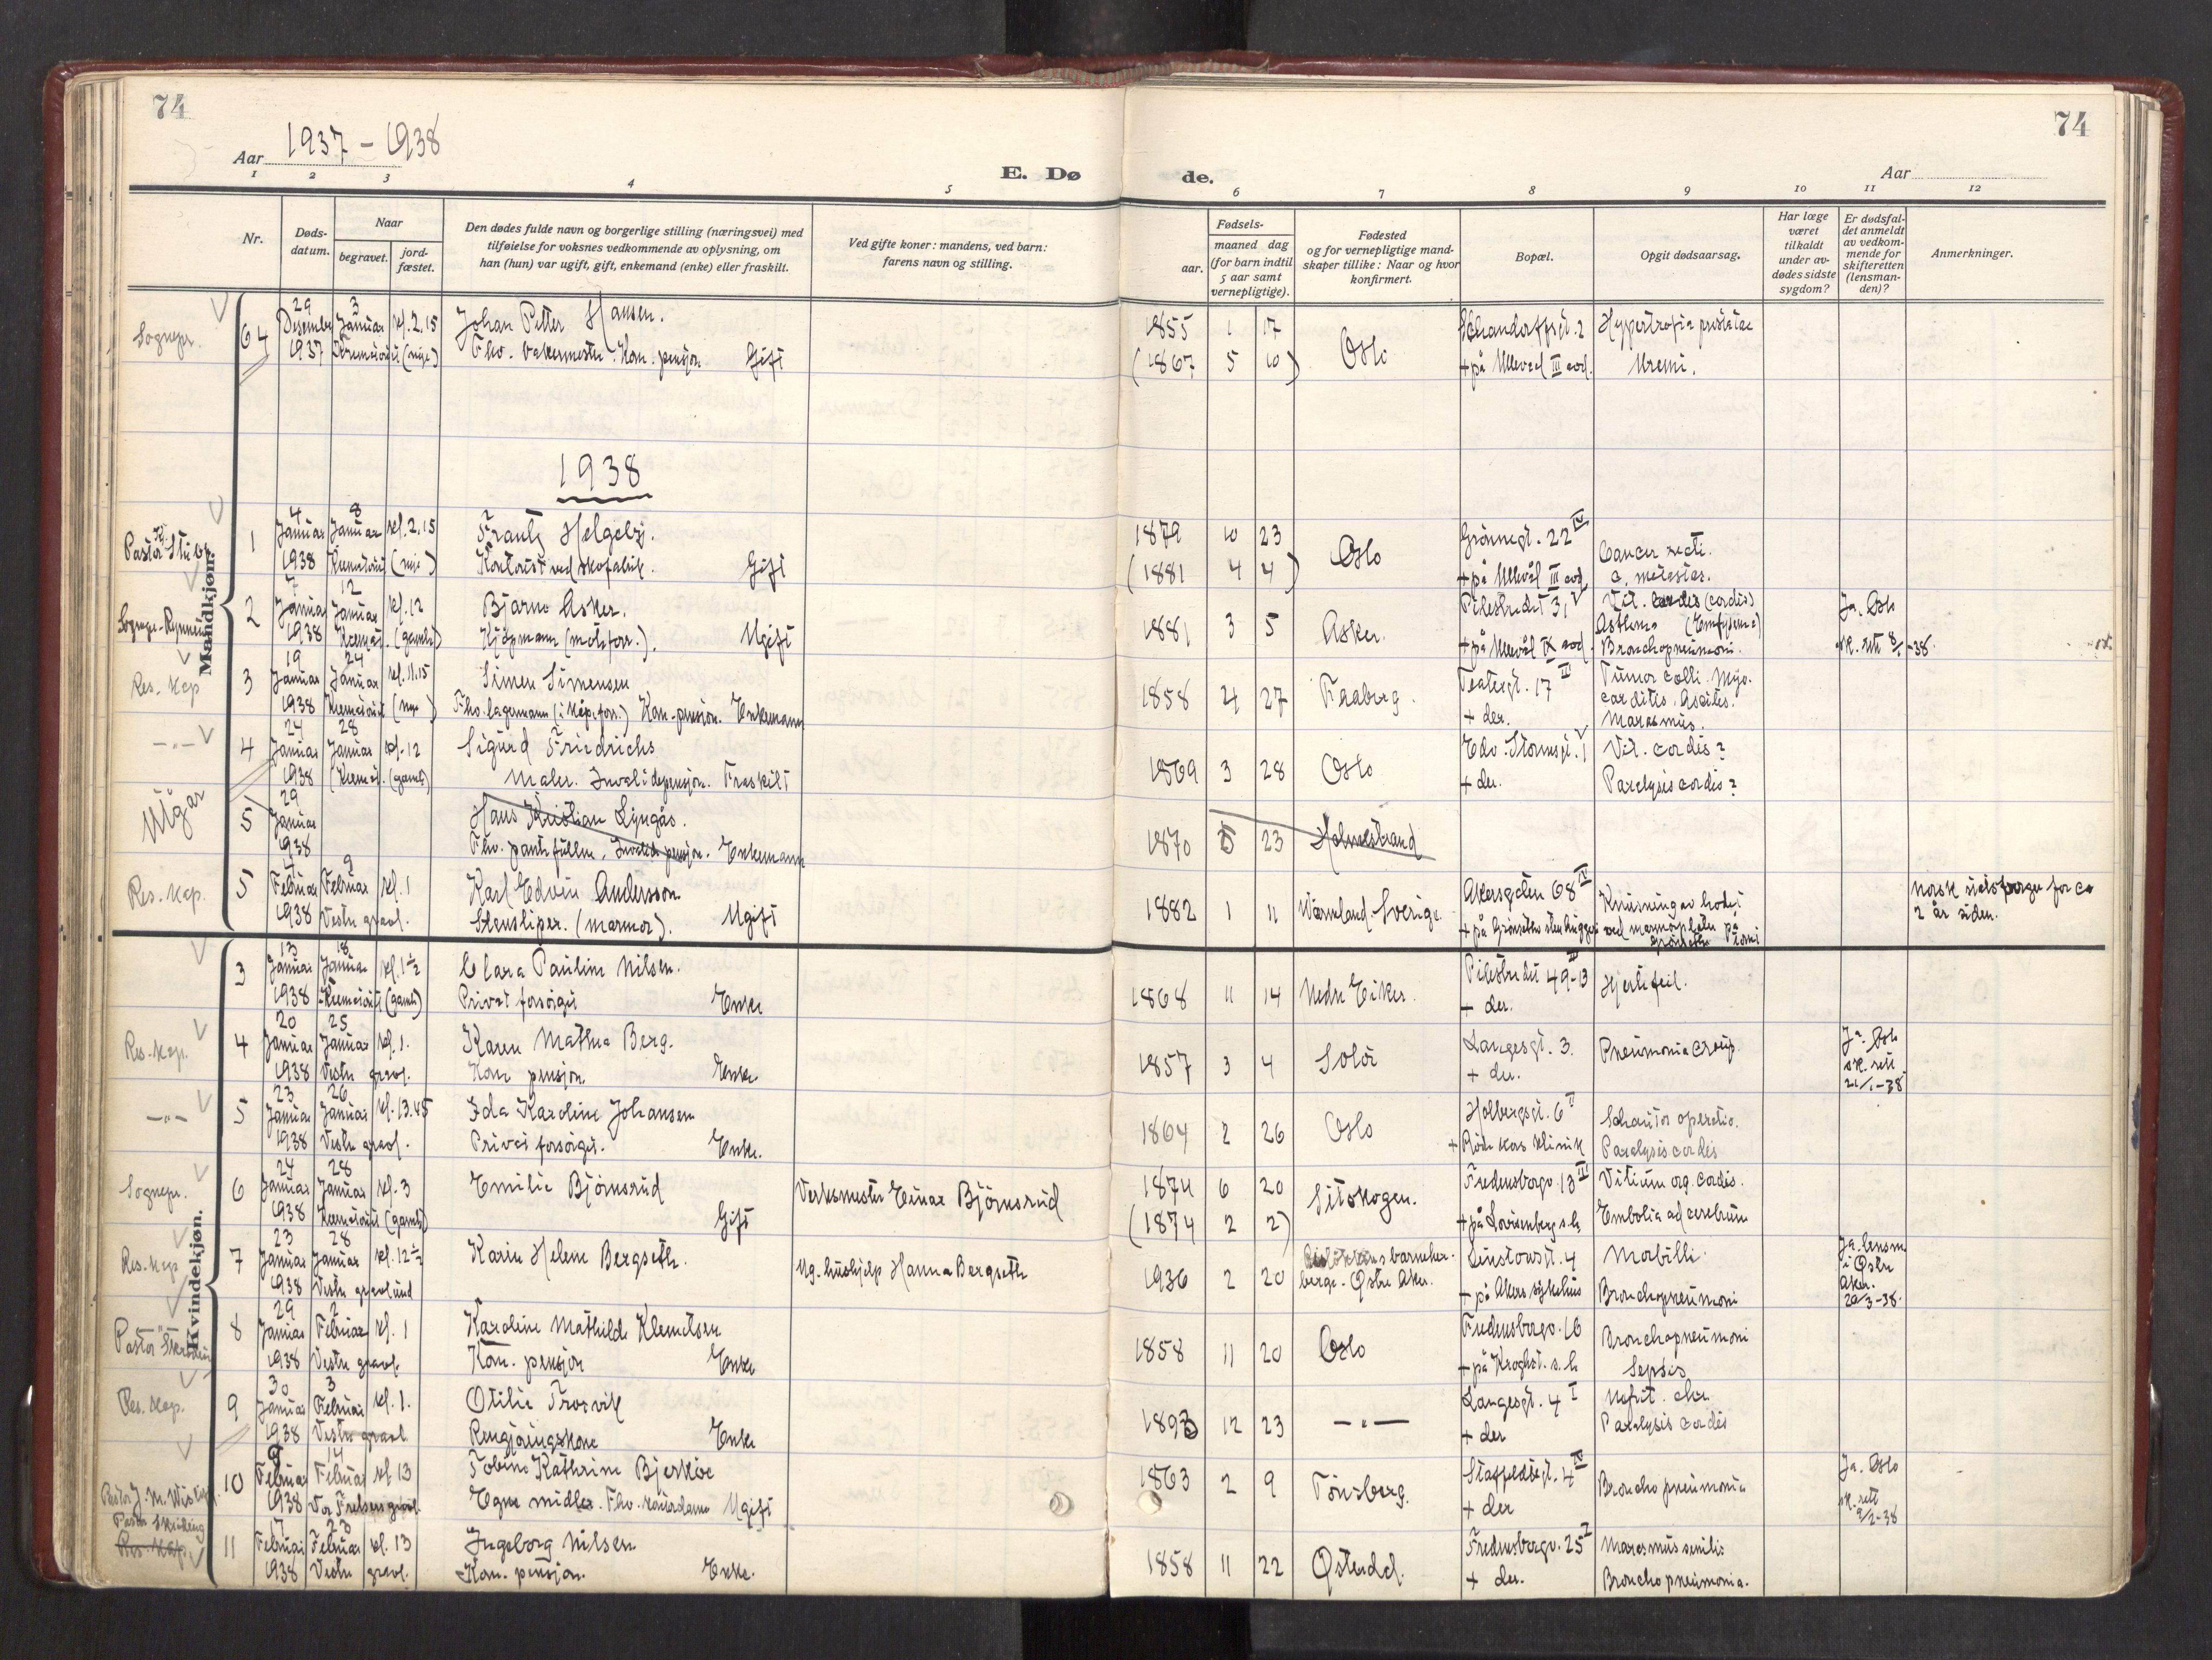 74
74
Aar 1937 - 1938
E. Dø
de.
Aar
1 2 3 4 5 6 7 8 9 10 11 12
Nr.
Døds-
datum.
Naar
begravet.
jord-
fæstet.
Den dødes fulde navn og borgerlige stilling (næringsvei) med
tilføielse for voksnes vedkommende av oplysning, om
han (hun) var ugift, gift, enkemand (enke) eller fraskilt.
Ved gifte koner: mandens, ved barn:
farens navn og stilling.
Fødsels-
aar.
maaned dag
(for barn indtil
5 aar samt
vernepligtige).
Fødested
og for vernepligtige mand-
skaper tillike: Naar og hvor
konfirmert.
Bopæl.
Opgit dødsaarsag.
Har læge
været
tilkaldt
under av-
dødes sidste
sygdom?
Er dødsfal-
det anmeldt
av vedkom-
mende for
skifteretten
(lensman-
den)?
Anmerkninger.
Mandkjøn.
Sognepr.
64
29 Desember 1937
3 Januar kl. 2.15
Krematoriet (nye)
Johan Petter Hansen.
Fhv. vaktmester. Kom. pensjon Gift
1855 1 17
(1867 5 10)
Oslo
+ på Ullevål III avd.
Hypertrofia prostatae
Uremi.
1938
Pastor
1
4 Januar 1938
8 Januar kl. 2.15
Krematoriet (nye)
Frantz Helgeby.
Kontorist ved skofabrik. Gift
1879 10 23
(1881 4 4)
Oslo
Grønnegt. 22 IV
+ på Ullevål III avd.
Cancer recti.
c. metastas.
Sognepr.
2
7 Januar 1938
12 Januar kl. 12
Kremat. (gamle)
Bjarne Asker.
Kjøpmann (moteforr.). Ugift
1881 3 5
Asker.
Pilestredet 31 V
+ på Ullevål IX avd.
Vit. cordis (cordis)
Asthma (Emfysema)
Bronchopneumoni.
Ja. Oslo
sk. rett 8/1-38.
Res. kap
3
19 Januar 1938
24 Januar kl. 11.15
Krematoriet (nye)
Simen Simensen
Fhv. lagermann (i kåpeforr.) Kom. pensjon. Enkemann
1858 4 27
Faaberg.
Teatergt. 17 III
+ der.
Tumor colli. Myo-
carditis. Ascites.
Marasmus.
-"-
4
24 Januar 1938
28 Januar kl. 12
Kremat. (gamle)
Sigurd Friedrichs
Maler. Invalidepensjon. Fraskilt
1869 3 28
Oslo
Edv. Stormsgt. 1 V
+ der.
Vit. cordis?
Paralysis cordis?
Utgår
5
29 Januar 1938
Hans Kristian Lyngås.
Enkemann
1870 5 23
Holmestrand
Res. kap.
5
4 Februar 1938
9 Februar kl. 1
Vestre gravl.
Karl Edvin Andersson
Stensliper. (marmor). Ugift
1882 1 11
Wärmland. Sverige
Akersgaten 68 IV
+ på Grønsetens stenhuggeri
Knusning av hodet
ved marmorplate på
Norsk statsborger for ca
2 år siden.
Kvindekjøn.
3
13 Januar 1938
18 Januar kl. 1½
Krematoriet (gamle)
Clara Pauline Nilsen.
Privat forsørget Enke
1868 11 14
Nedre Eiker.
Pilestredet 49-13 III
+ der.
Hjertefeil.
Res. kap.
4
20 Januar 1938
25 Januar kl. 1.
Vestre gravl.
Karen Mathea Berg.
Kom. pensjon Enke
1857 3 4
Solør
Langesgt. 3.
+ der.
Pneumonia croup.
Ja. Oslo
sk. rett
21/1-38
-"-
5
23 Januar 1938
26 Januar kl. 13.45
Vestre gravl.
Ida Karoline Johansen
Privat forsørget. Enke.
1864 2 26
Oslo
Holbergsgt. 6 II
+ Røde Kors Klinik
Schautas operatio.
Paralysis cordis
Sognepr.
6
24 Januar 1938
28 Januar kl. 3
Krematoriet (gamle)
Emilie Bjørnsrud
Gift
Verksmester Einar Bjørnsrud
1874 6 20
(1874 2 2)
Sitskogen.
Fredensborgv. 13 III
+ på Lovisenberg s.h.
Vitium org. cordis.
Embolia ad cerebrum
Res. kap
7
23 Januar 1938
28 Januar kl. 12½
Vestre gravlund
Karin Helene Bergseth.
Ug. hushjelp Hanna Bergseth
1936 2 20
barneher-
berge - Østre Aker.
Linstowsgt. 4
+ på Akers sykehus
Morbilli
Bronchopneumoni
Ja. lensm.
i Østre
Aker.
20/3-38.
Pastor
8
29 Januar 1938
2 Februar kl. 1
Vestre gravl.
Karoline Mathilde Klemetsen
Kom. pensjon Enke
1858 11 20
Oslo
Fredensborgv. 16
+ på Kroghst. s.h.
Bronchopneumoni
Sepsis
Res. kap.
9
30 Januar 1938
3 Februar kl. 1.
Vestre gravl.
Otilie Trosvik
Rengjøringskone Enke
1893 12 23
-"-
Langesgt. 4 I
+ der
Nefrit. chr.
Paralysis cordis
Pastor J. M.
10
9 Februar 1938
14 Februar kl 13
Vor Frelsers gravl.
Tobine Kathrine Bjerkøe
Egne midler. Ugift
1863 2 9
Tønsberg.
Staffeldtsgt. 4 IV
+ der
Bronchopneumonia
Ja. Oslo
sk. rett
9/2-38
Pastor
Res. kap.
11
23 Februar kl. 13
Februar 1938
Vestre gravl.
Ingeborg Nilsen
Kom. pensjon. Enke.
1858 11 22
Østerdal.
Fredensborgv. 25
+ der.
Marasmus senilis
Bronchopneumonia.